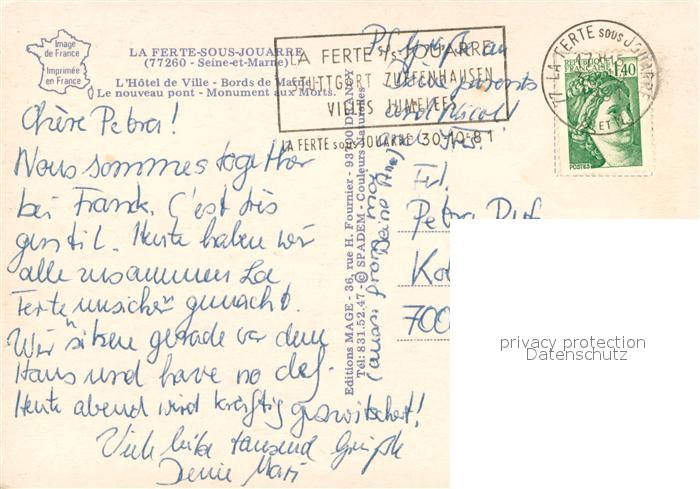 Image
de France
Imprimée
en France
LA FERTE-SOUS-JOUARRE
(77260 - Seine-et-Marne)
L'Hôtel de Ville - Bords de Marne
Le nouveau pont - Monument aux Morts.
LA FERTE s/s JOUARRE
STUTTGART ZUFFENHAUSEN
VILLES JUMELEES
LA FERTE sous JOUARRE 30-10-81
77 LA FERTE SOUS JOUARRE
REPUBLIQUE
FRANÇAISE
1,40
POSTES
PS Grüße an
Deine
und
Chère Petra!
Nous sommes together
bei Franck. C'est très
gentil. Heute haben wir
alle zusammen La
Ferte unsicher gemacht.
Wir sitzen gerade vor dem
Haus und have no
Heute abend wird kräftig
Viele liebe tausend Grüße
Deine
Editions MAGE - 36, rue H. Fournier - 93
Tél: 831.52.47 - © SPADEM - Couleurs Naturelles
from
Frl.
Petra
700
privacy protection
Datenschutz